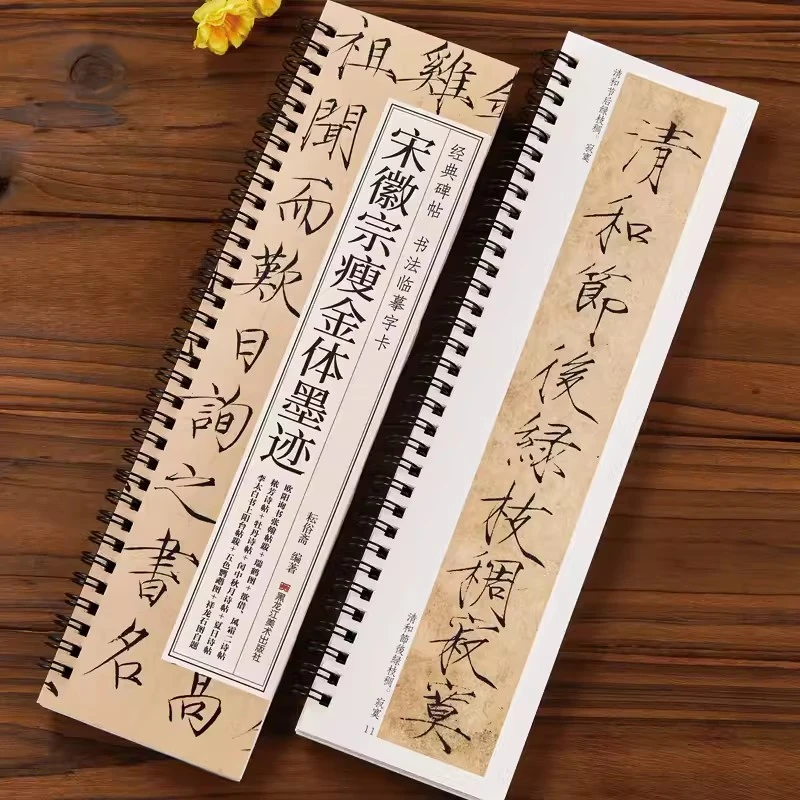 雞
高
祖聞而歎曰詢之書名
经典碑帖 书法临摹字卡
宋徽宗瘦金体墨迹
欧阳询书张翰帖跋+瑞鹤图+欲借、风霜二诗帖
秾芳诗帖+牡丹诗帖+闰中秋月诗帖+夏日诗帖
李太白书上阳台帖跋+五色鹦鹉图+祥龙石图自题
耘俗斋 编著
黑龙江美术出版社
清和节后绿枝稠,寂寞
清和節後緑枝稠寂寞
清和節後緑枝稠,寂寞
11